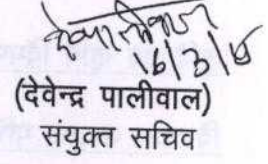 16/3/18
(देवेन्द्र पालीवाल)
संयुक्त सचिव